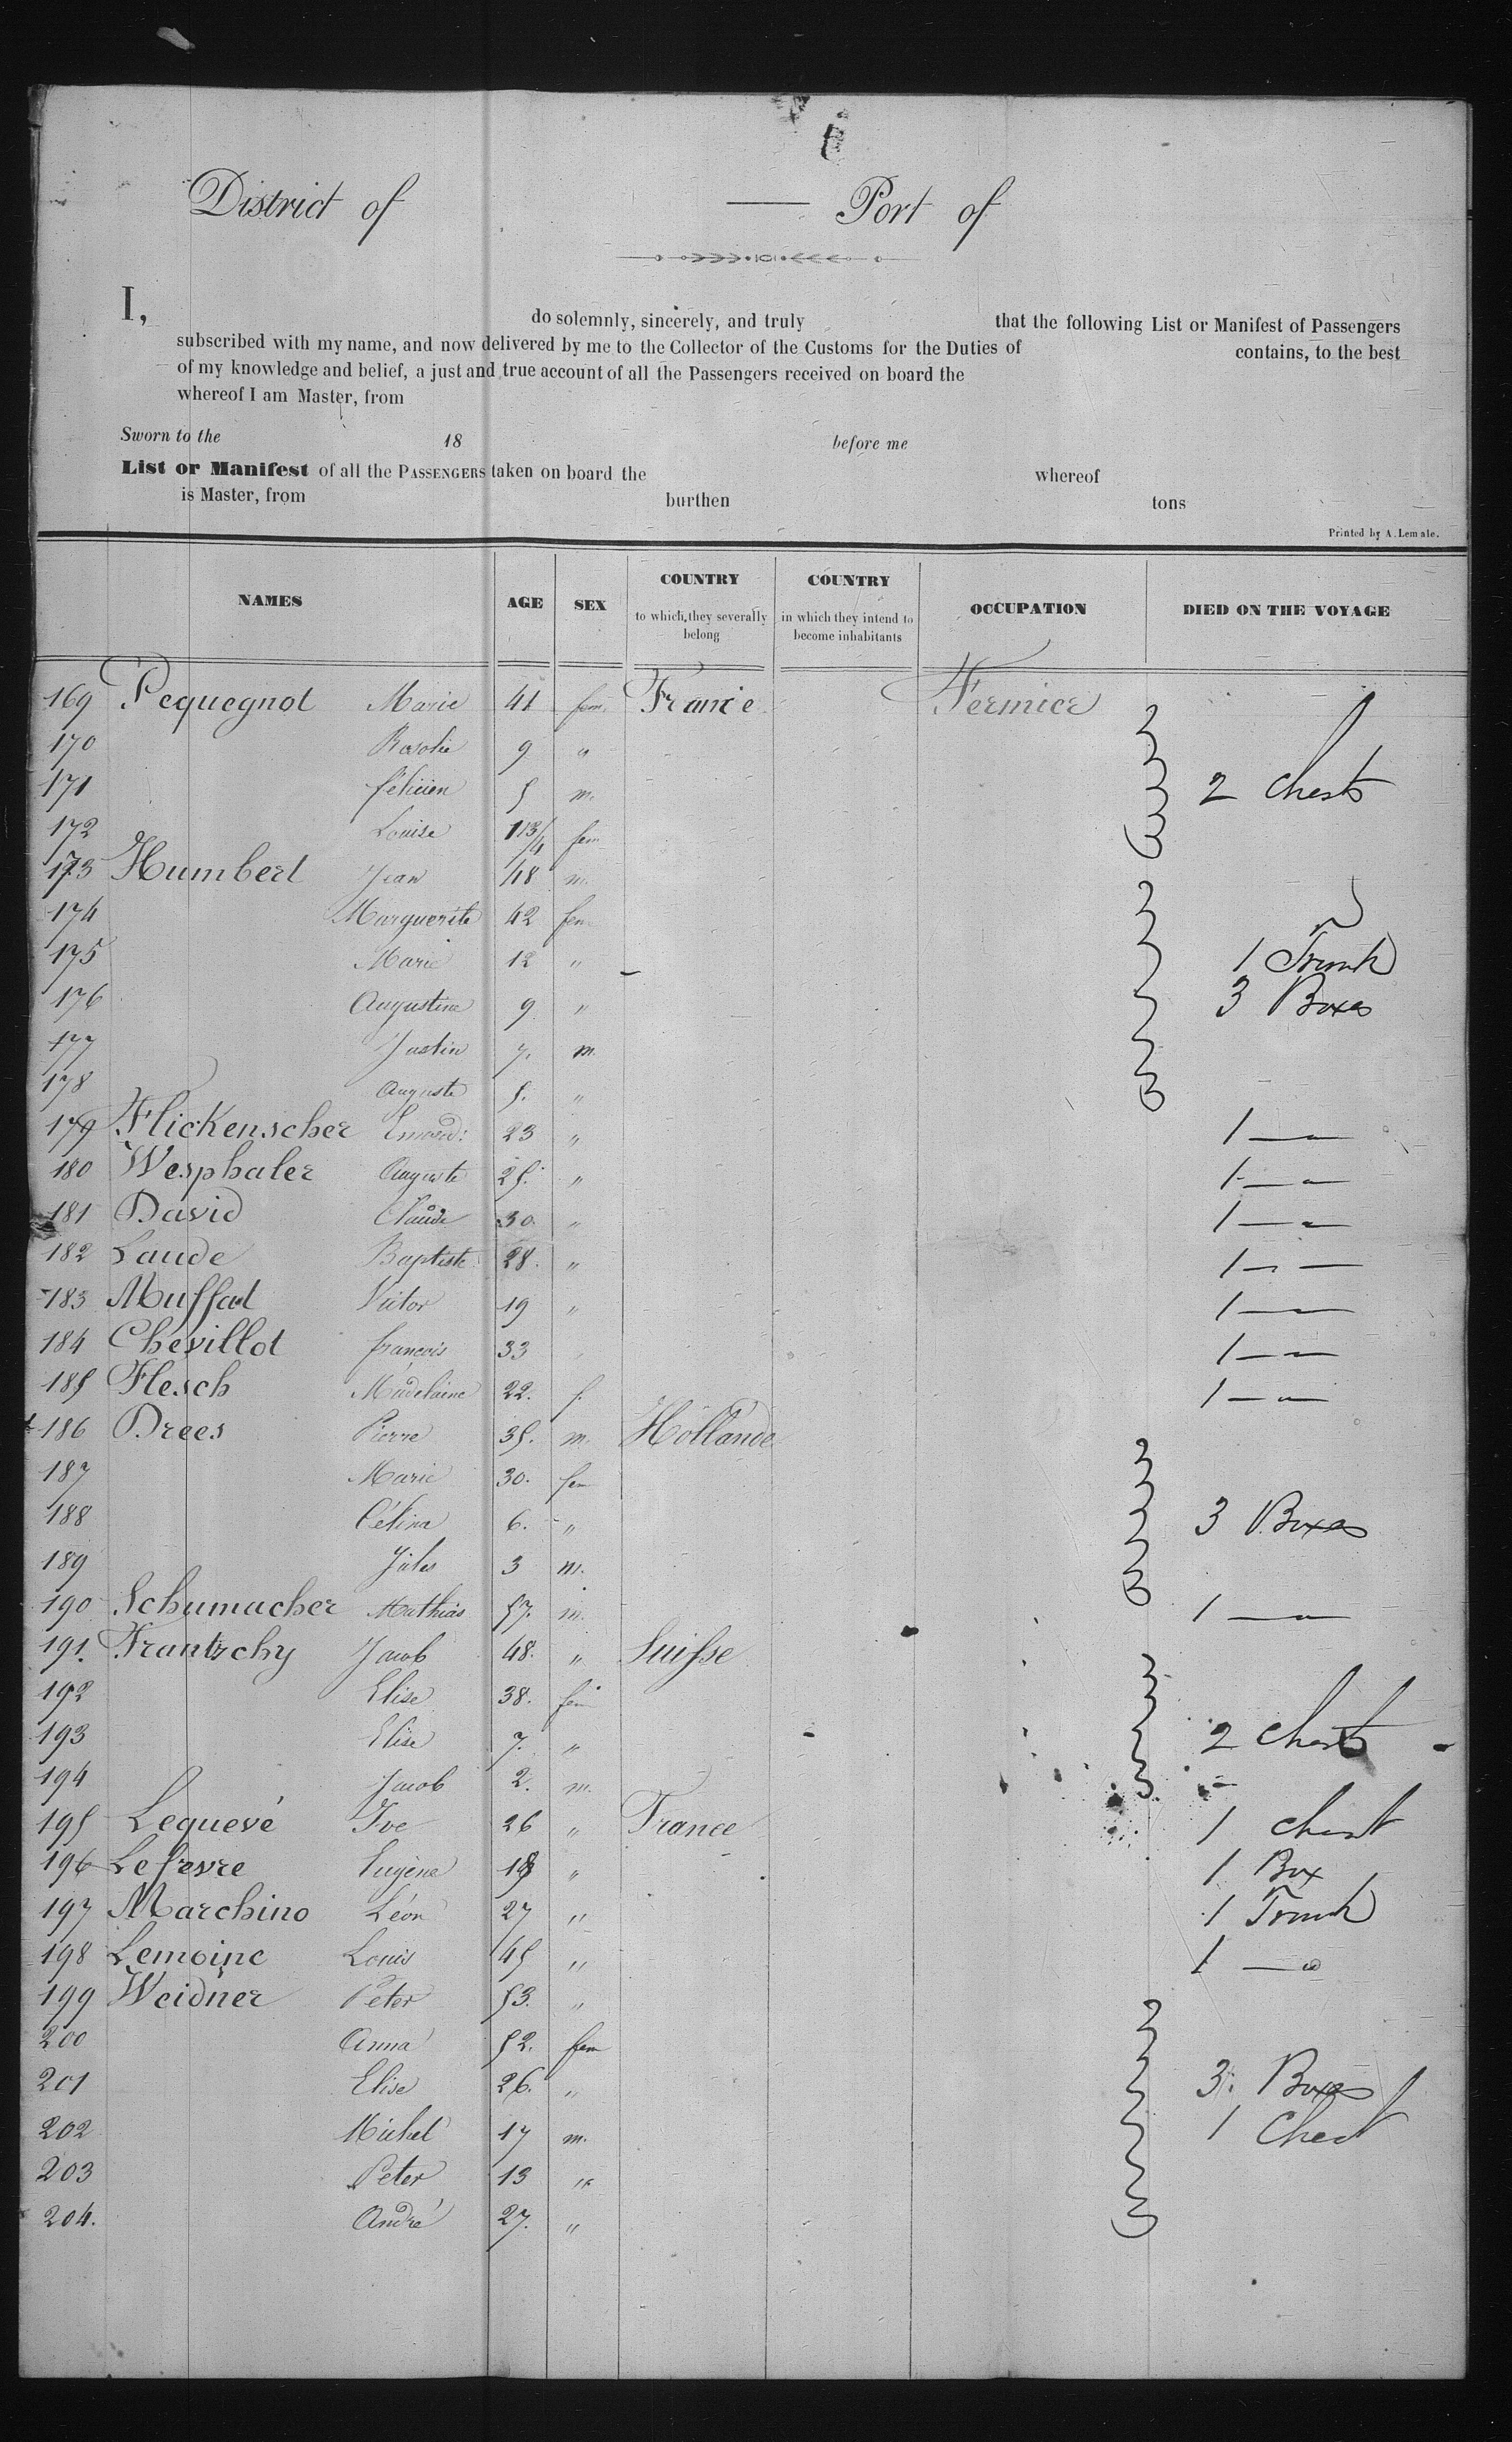 District of — Port of
I, do solemnly, sincerely, and truly that the following List or Manifest of Passengers
subscribed with my name, and now delivered by me to the Collector of the Customs for the Duties of contains, to the best
of my knowledge and belief, a just and true account of all the Passengers received on board the
whereof I am Master, from
Sworn to the 18 before me
List or Manifest of all the PASSENGERS taken on board the whereof
is Master, from burthen tons
Printed by A. Lemale.
NAMES AGE SEX COUNTRY to which they severally belong COUNTRY in which they intend to become inhabitants OCCUPATION DIED ON THE VOYAGE
169 Pequegnot Marie 41 fem. France Fermier
170 Rosalie 9 "
171 félicien 5 m. 2 Chests
172 Louise 1 13/4 fem
173 Humbert Jean 48 m.
174 Marguerite 42 fem.
175 Marie 12 " 1 Trunk
176 Augustine 9 " 3 Boxes
177 Justin 7. m.
178 Auguste 5. "
179 Flickenscher 23 " 1 — "
180 Wesphaler Auguste 25. " 1 — "
181 David Claude 30. " 1 — "
182 Laude Baptiste 28. " 1 — "
183 Muffat Victor 19 " 1 — "
184 Chevillot françois 33 1 — "
185 Flesch Madelaine 22. f. 1 — "
186 Drees Pierre 35. m. Hollande
187 Marie 30. fem
188 Célina 6. " 3 Boxes
189 Jules 3 m.
190 Schumacher Mathias 57. m. 1 — "
191. Frantzchy Jacob 48. " Suisse
192 Elise 38. fem
193 Elise 7. " 2 Chests
194 Jacob 2. m.
195 Lequevé Ive 26 " France 1 Chest
196 Lefevre Eugène " 1 Box
197 Marchino Léon 27 " 1 Trunk
198 Lemoine Louis 45 " 1 — "
199 Weidner Peter 53. "
200 Anna 52. fem
201 Elise 26. " 3 Boxes
202 Michel 17 m. 1 Chest
203 Peter 13 "
204. André 27. "